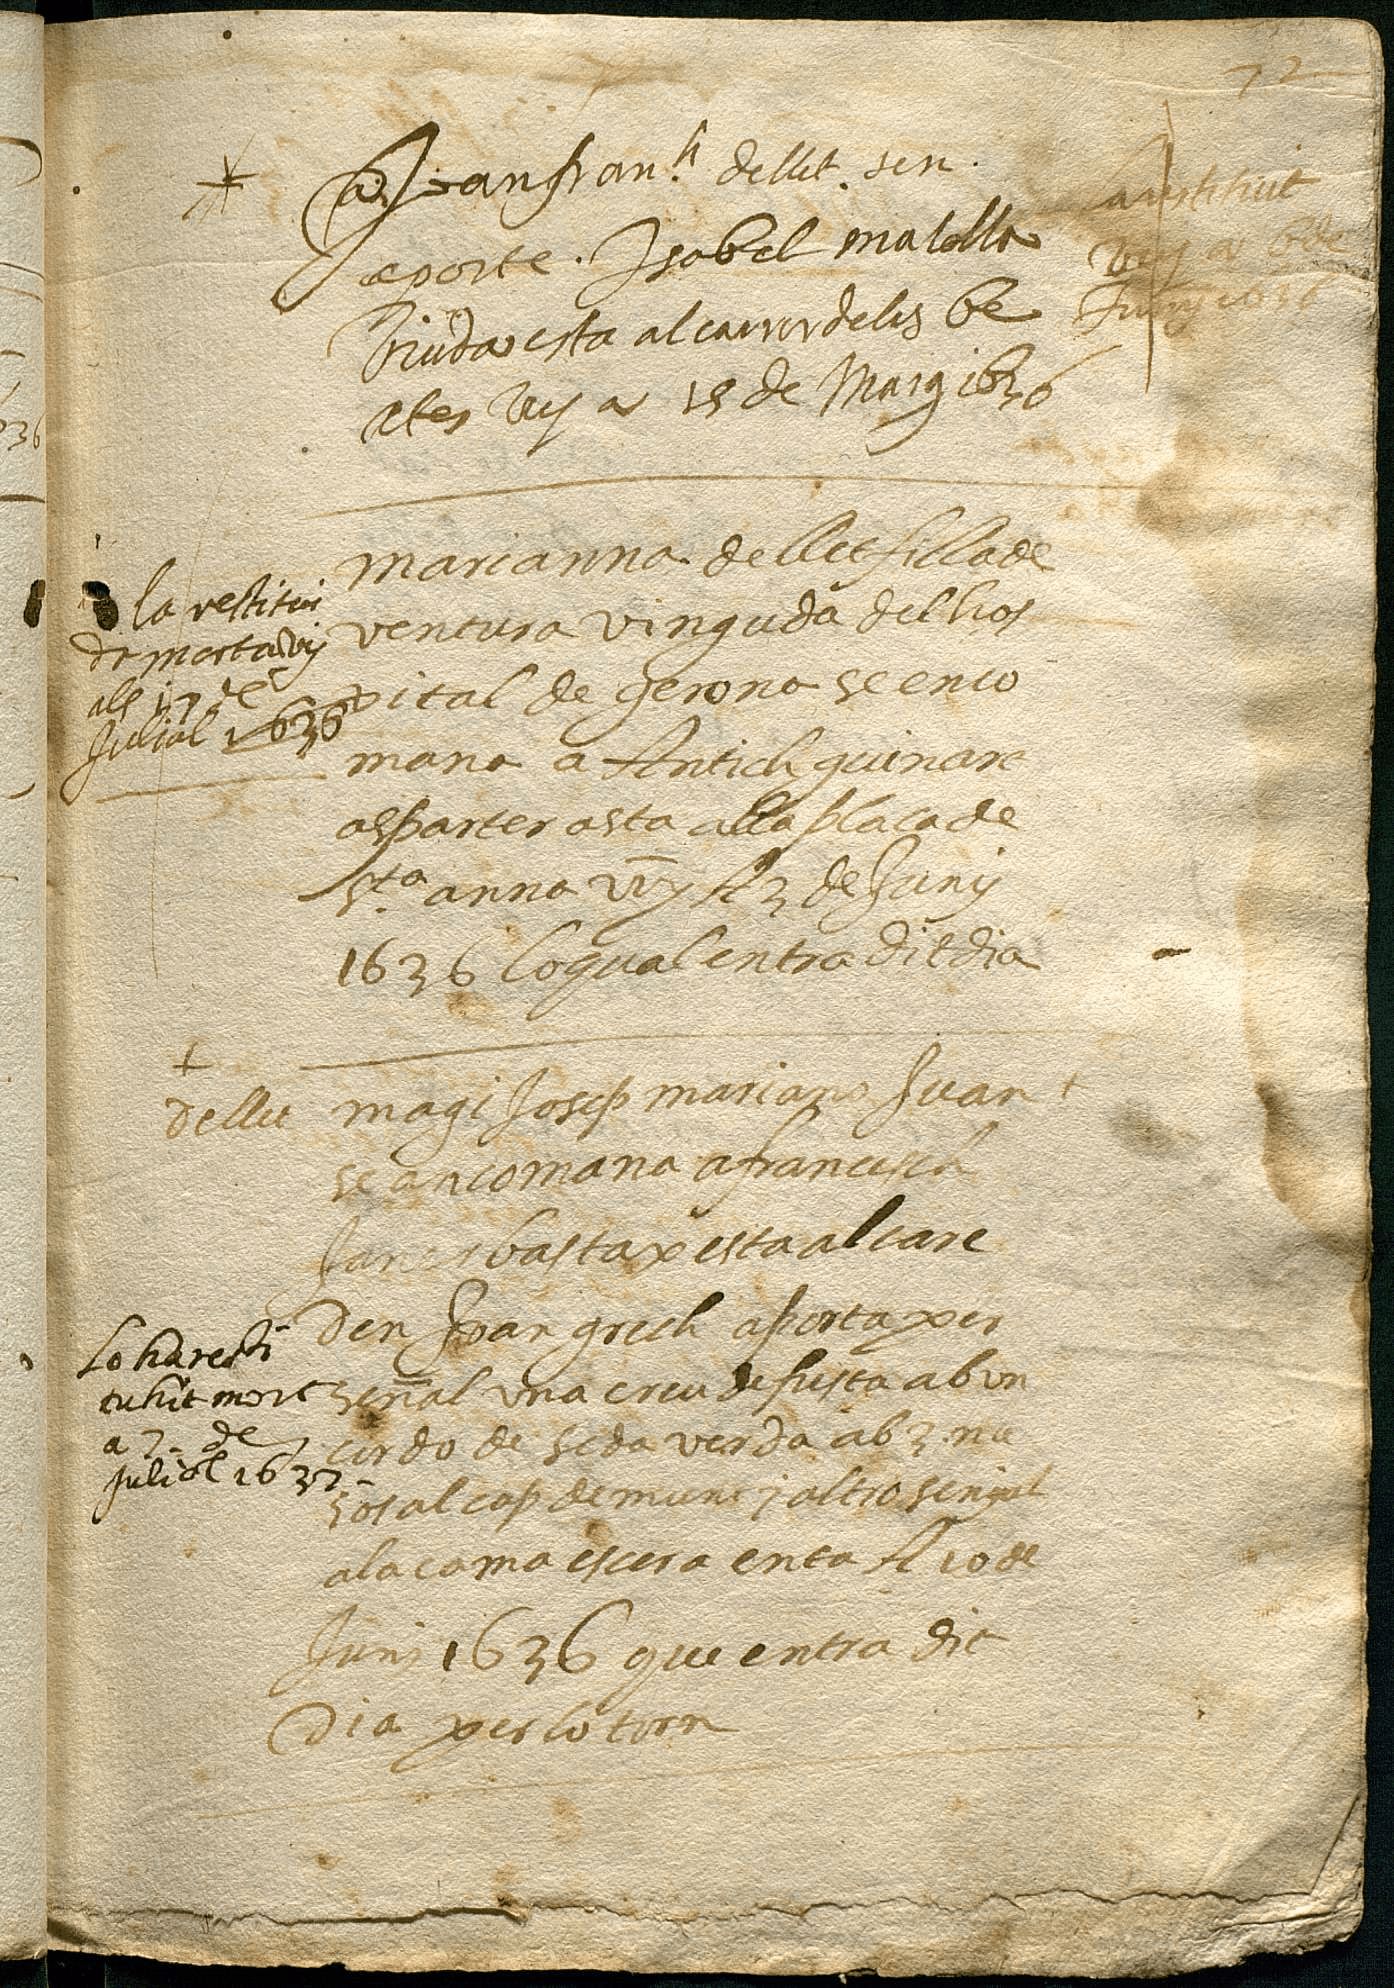 72
Joan fran.ch dellet. sen
aporte. Isabel matella
Viuda esta al carrer deles be
ates Vuy a 19 de Maig 1636
a restituit
Vuy a 6 de
Juny 1636
marianna de llet filla de
ventura vinguda del hos
pital de gerona se enco
mana a Antich guinart
asparter asta alla plaça de
s.ta anna vuy A 3 de Juny
1636 loqual entra dit dia
la restitui
da morta vuy
als 17 de
Juliol 1636
dellet
magi Josep mariano Juan
se ancomana a francesch
Janer bastax esta al care
Den Joan grech aporta per
señal vna creu de fusta ab vn
cordo de seda verda ab 3 nu
sos al cap de munt j altro senyal
ala cama escera enta A 10 de
Juni 1636 que entra dit
Dia per lo torn
Lo ha resti
tuhit mort
a 7 de
Juliol 1637